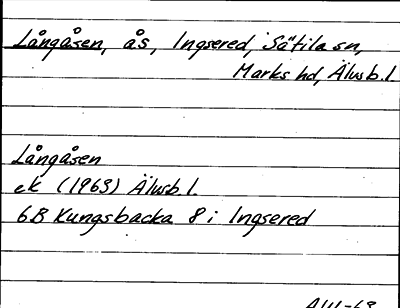 Långåsen, ås, Ingsered, Sätila sn,
Marks hd, Älvsb.l.
Långåsen
ek (1963) Älvsb l.
6B Kungsbacka 8 i Ingsered